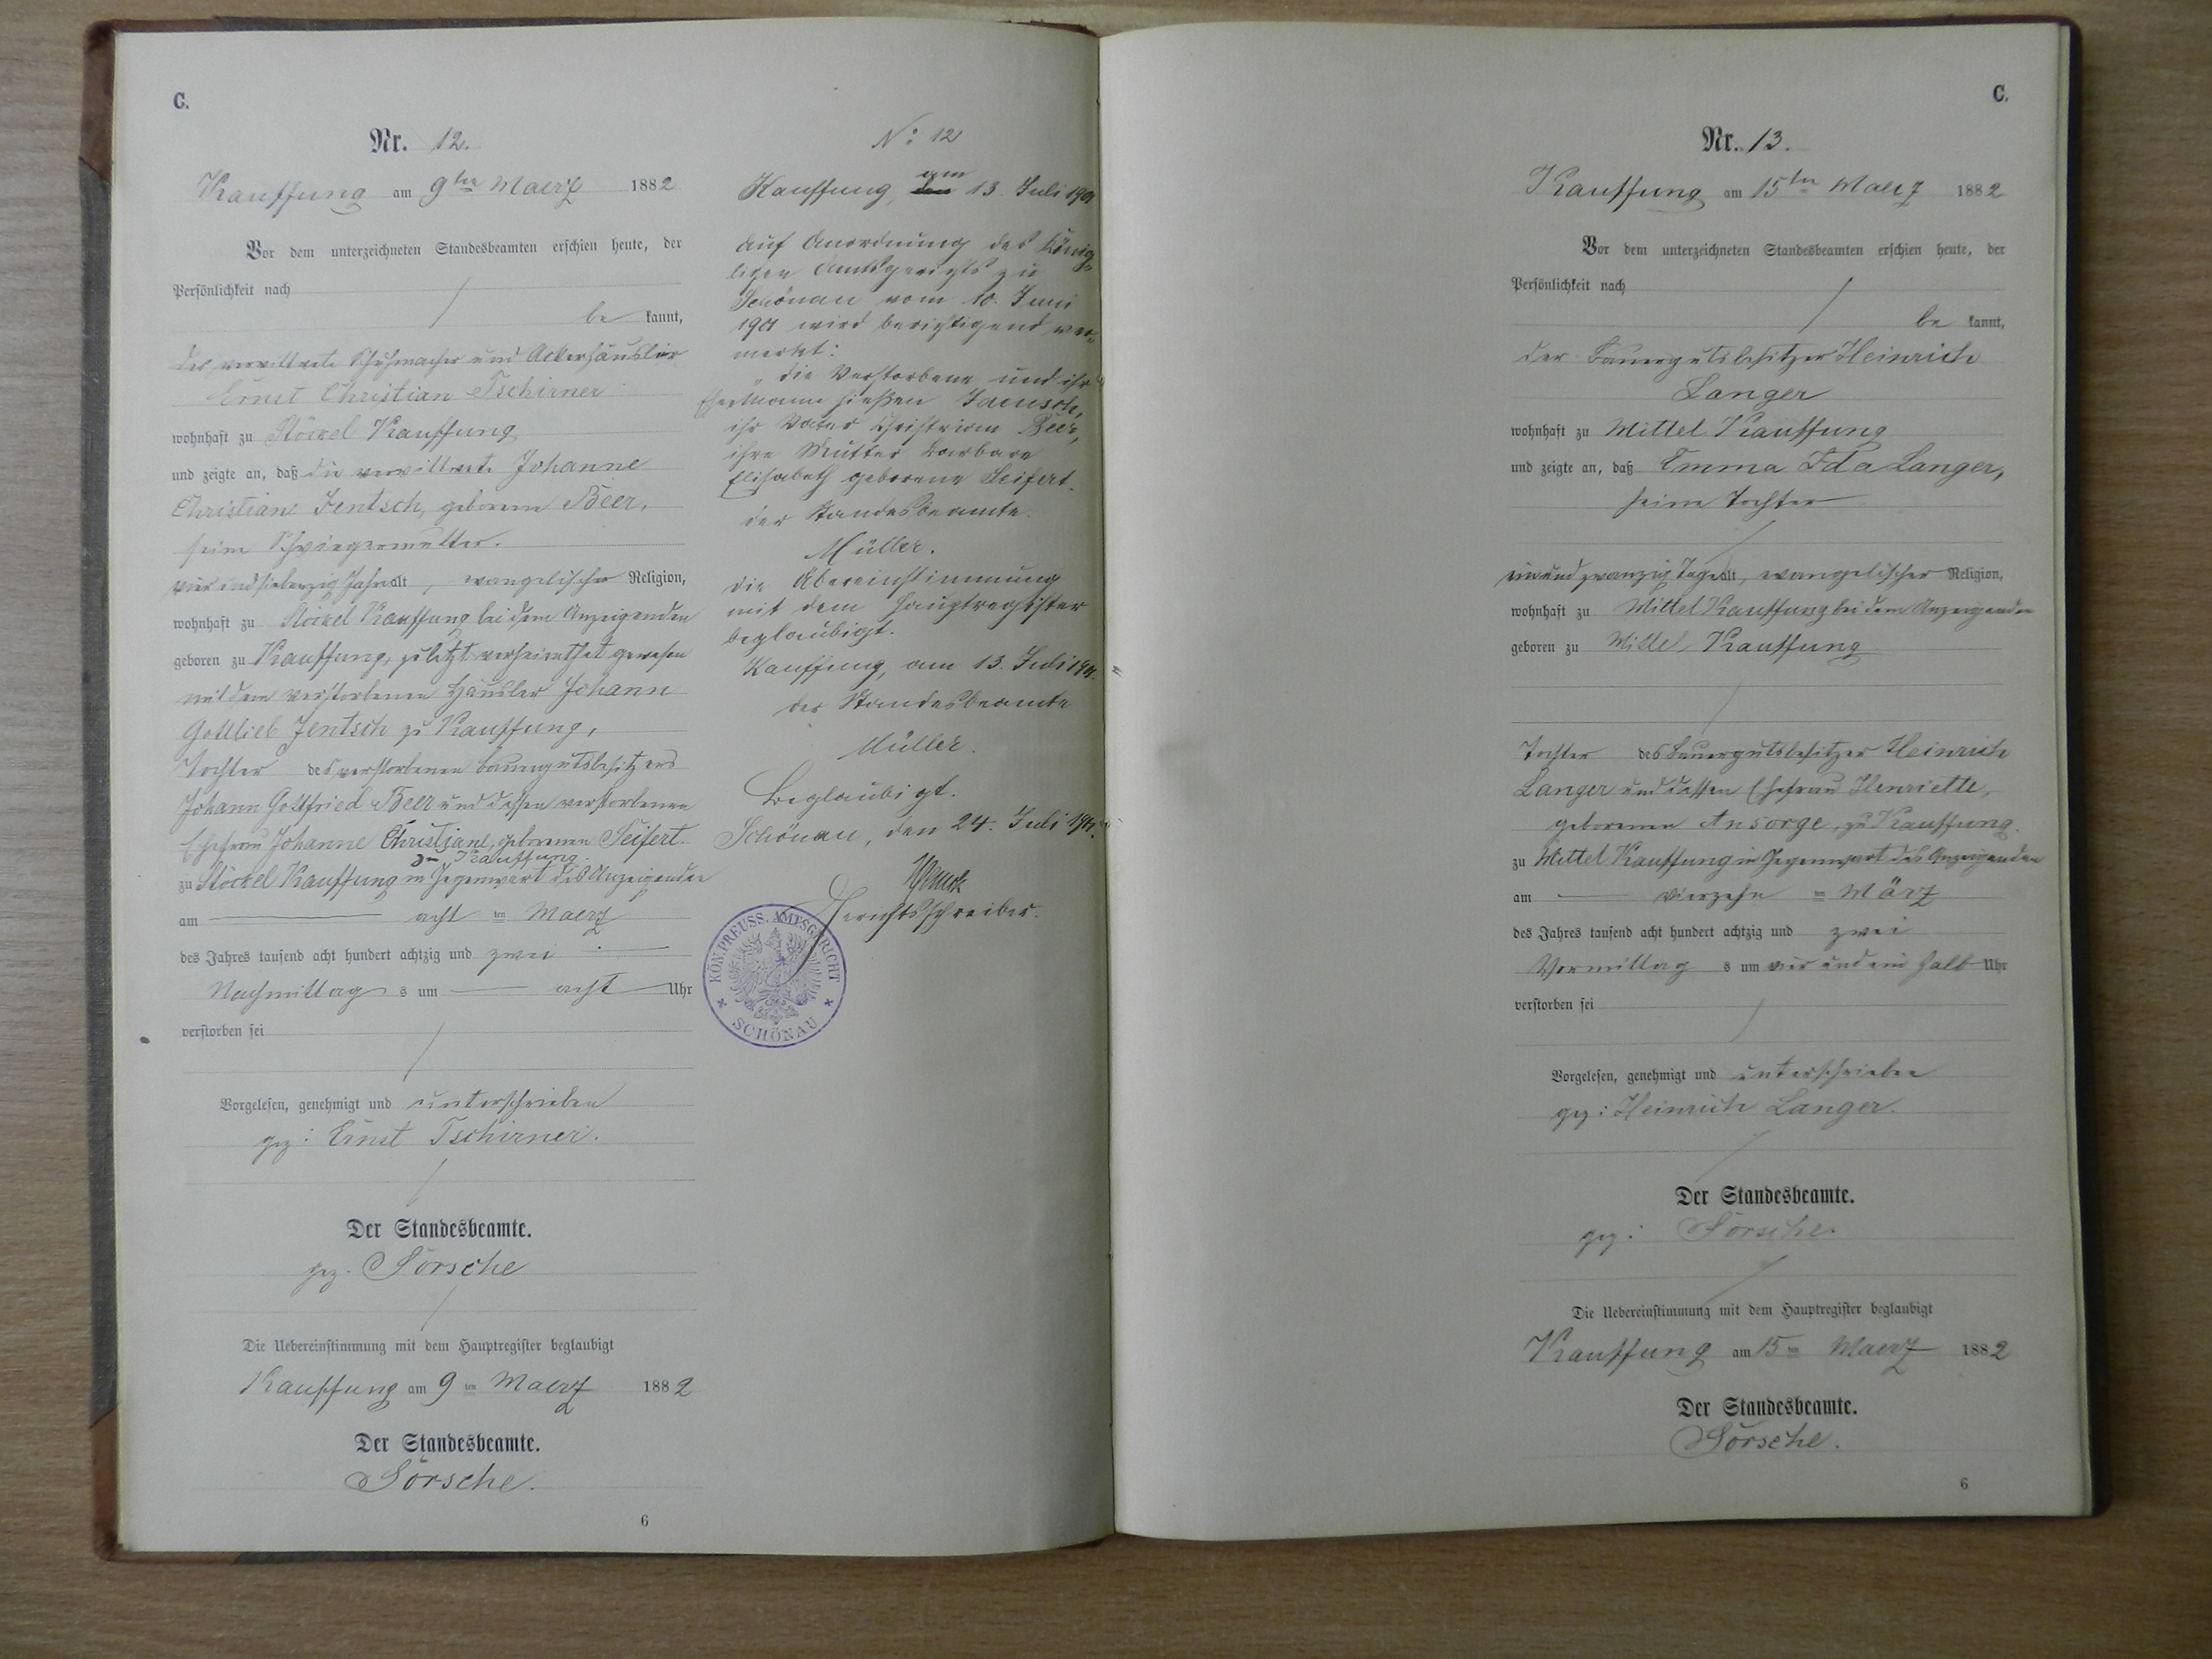 C.
Nr. 12.
Kauffung am 9ten Maerz 1882
Vor dem unterzeichneten Standesbeamten erschien heute, der
Persönlichkeit nach
be kannt,
der verwittwete Schuhmacher und Ackerhäusler
Ernst Christian Tschirner
wohnhaft zu Stöckel Kauffung
und zeigte an, daß die verwittwete Johanne
Christiane Jentsch, geborene Beer,
seine Schwiegermutter.
vier und siebenzig Jahre alt, evangelischer Religion,
wohnhaft zu Stöckel Kauffung bei dem Anzeigenden
geboren zu Kauffung, zuletzt verheirathet gewesen
mit dem verstorbenen Häusler Johann
Gottlieb Jentsch zu Kauffung,
Tochter des verstorbenen Bauergutsbesitzers
Johann Gottfried Beer und dessen verstorbenen
Ehefrau Johanne Christiane, geborenen Seifert.
zu Kauffung.
zu Stöckel Kauffung in Gegenwart des Anzeigenden
am acht ten Maerz
des Jahres tausend acht hundert achtzig und zwei
Nachmittag s um acht Uhr
verstorben sei
Vorgelesen, genehmigt und unterschrieben
gez: Ernst Tschirner.
Der Standesbeamte.
gez. Sörsche
Die Uebereinstimmung mit dem Hauptregister beglaubigt
Kauffung am 9 ten Maerz 1882
Der Standesbeamte.
Sörsche.
6
No: 12
Kauffung, den am 13. Juli 1901
Auf Anordnung des König-
lichen Amtsgerichts zu
Schönau vom 10. Juni
1901 wird berichtigend ver-
merkt:
"die Verstorbene und ihr
Ehemann hießen Jaensch,
ihr Vater Christian Beer,
ihre Mutter Barbara
Elisabeth geborene Seifert.
der Standesbeamte.
Müller.
die Übereinstimmung
mit dem Hauptregister
beglaubigt.
Kauffung, am 13. Juli 1901.
der Standesbeamte
Müller.
Beglaubigt.
Schönau, den 24. Juli 1901.
Gerichtsschreiber.
KÖN. PREUSS. AMTSGERICHT
SCHÖNAU
C.
Nr. 13.
Kauffung am 15ten Maerz 1882
Vor dem unterzeichneten Standesbeamten erschien heute, der
Persönlichkeit nach
be kannt,
der Bauergutsbesitzer Heinrich
Langer
wohnhaft zu Mittel Kauffung
und zeigte an, daß Emma Ida Langer,
seine Tochter
ein und zwanzig Tage alt, evangelischer Religion,
wohnhaft zu Mittel Kauffung bei dem Anzeigenden
geboren zu Mittel Kauffung
Tochter des Bauergutsbesitzer Heinrich
Langer und dessen Ehefrau Henriette,
geborenen Ansorge, zu Kauffung.
zu Mittel Kauffung in Gegenwart des Anzeigenden
am vierzehn ten März
des Jahres tausend acht hundert achtzig und zwei
Vormittag s um vier und ein halb Uhr
verstorben sei
Vorgelesen, genehmigt und unterschrieben
gez: Heinrich Langer.
Der Standesbeamte.
gez: Sörsche.
Die Uebereinstimmung mit dem Hauptregister beglaubigt
Kauffung am 15 ten Maerz 1882
Der Standesbeamte.
Sörsche.
6